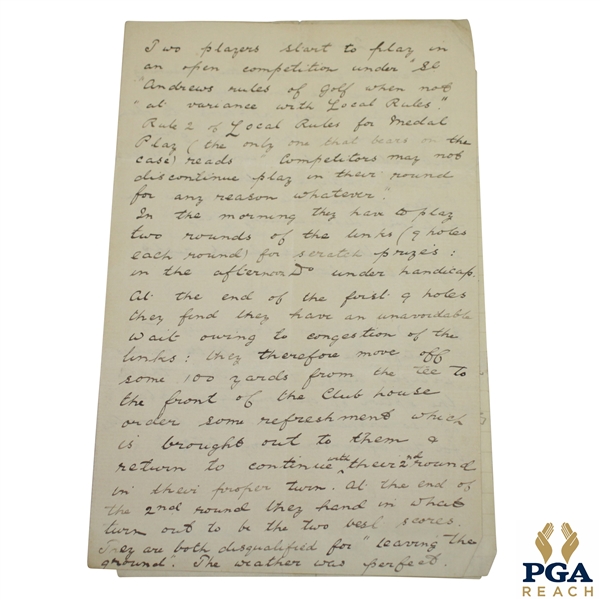 Two players start to play in
an open competition under "St
"Andrews rules of Golf when not
"at variance with Local Rules."
Rule 2 of Local Rules for Medal
Play (the only one that bears on the
case) reads "Competitors may not
discontinue play in their round
for any reason whatever."
In the morning they have to play
two rounds of the links (9 holes
each round) for scratch prizes:
in the afternoon Do under handicap.
At the end of the first 9 holes
they find they have an unavoidable
wait owing to congestion of the
links: they therefore move off
some 100 yards from the tee to
the front of the Club house
order some refreshment which
is brought out to them &
return to continue with their 2nd round
in their proper turn. At the end of
the 2nd round they hand in what
turn out to be the two best scores.
They are both disqualified for "leaving the
ground". The weather was perfect.
PGA
REACH